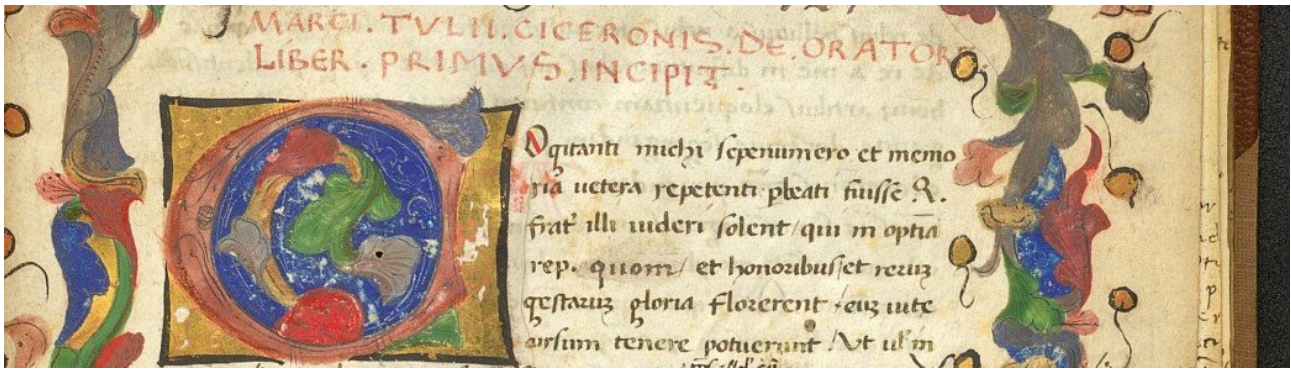 MARCI . TVLII . CICERONIS . DE . ORATORE .
LIBER . PRIMVS . INCIPIT .
Ogitanti michi sepenumero et memo
ria uetera repetenti pbeati fuisse Q.
frat' illi uideri solent / qui in optīa
rep. quom / et honoribus / et reruꝫ
gestaruꝫ gloria florerent / euꝫ uite
cursum tenere potuerunt / Vt ul' in